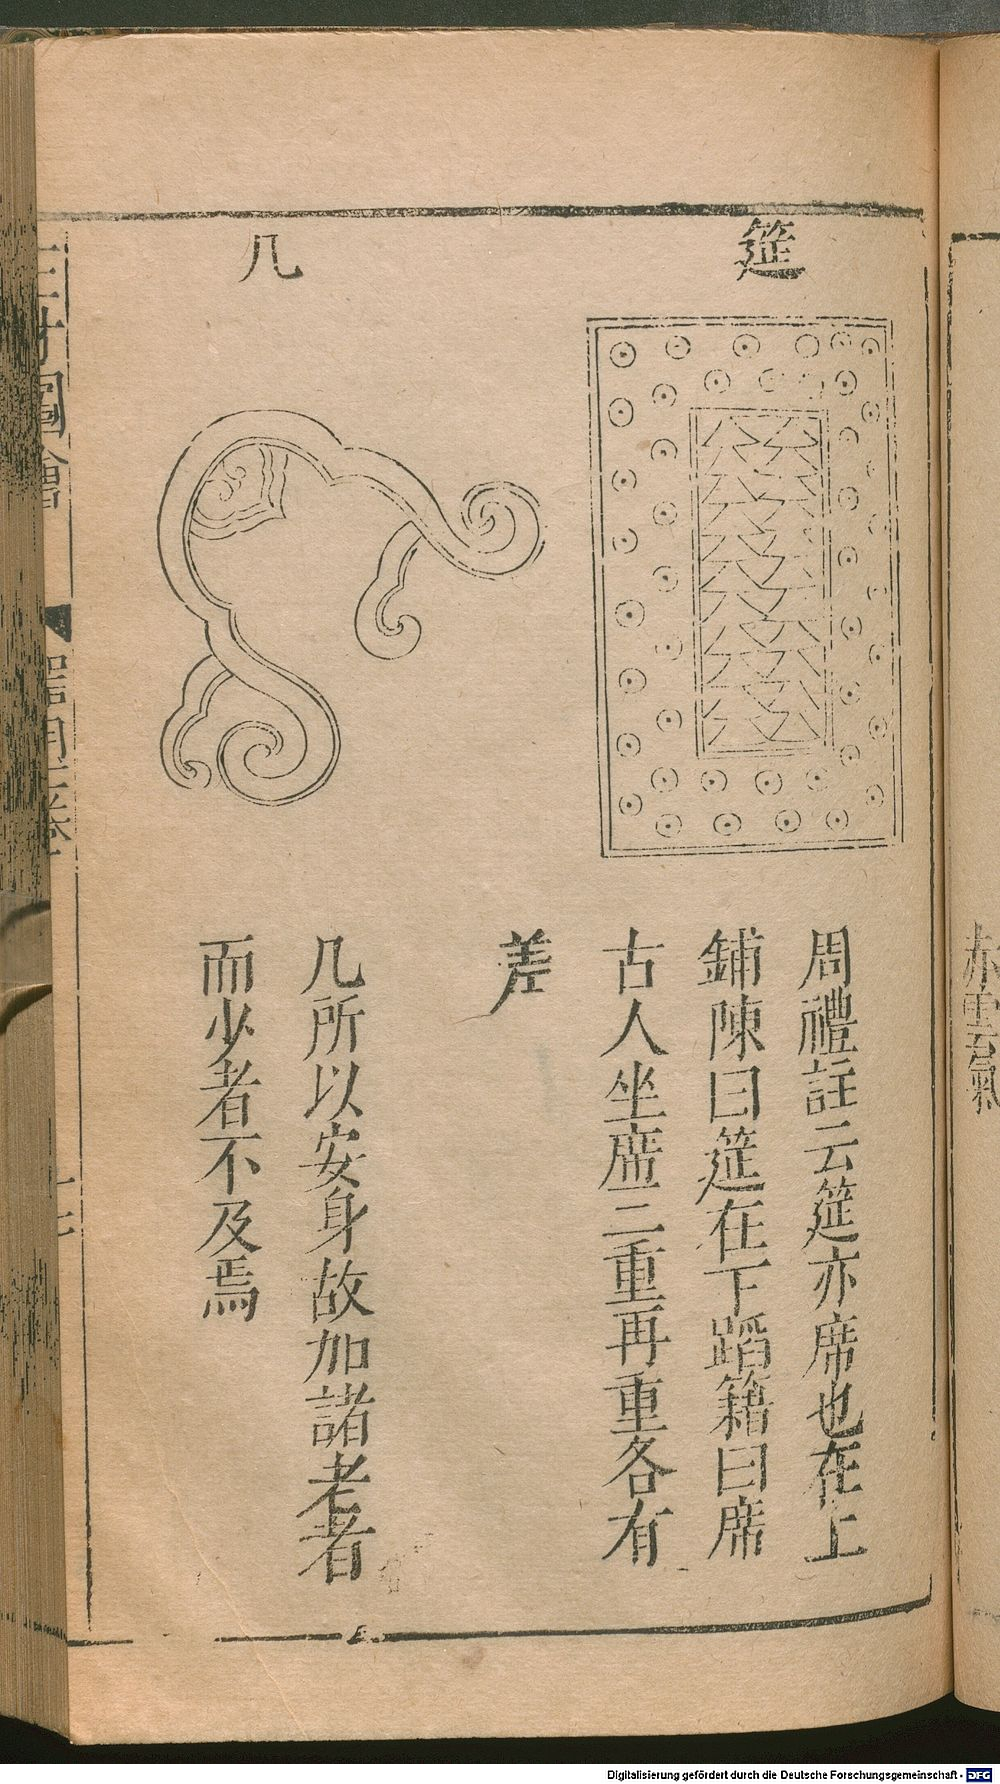 筵
周禮註云筵亦席也在上
鋪陳曰筵在下蹈籍曰席
古人坐席三重再重各有
差
几
几所以安身故加諸老者
而少者不及焉
三才圖會
器用十二卷
十七
赤雲氣
Digitalisierung gefördert durch die Deutsche Forschungsgemeinschaft - DFG